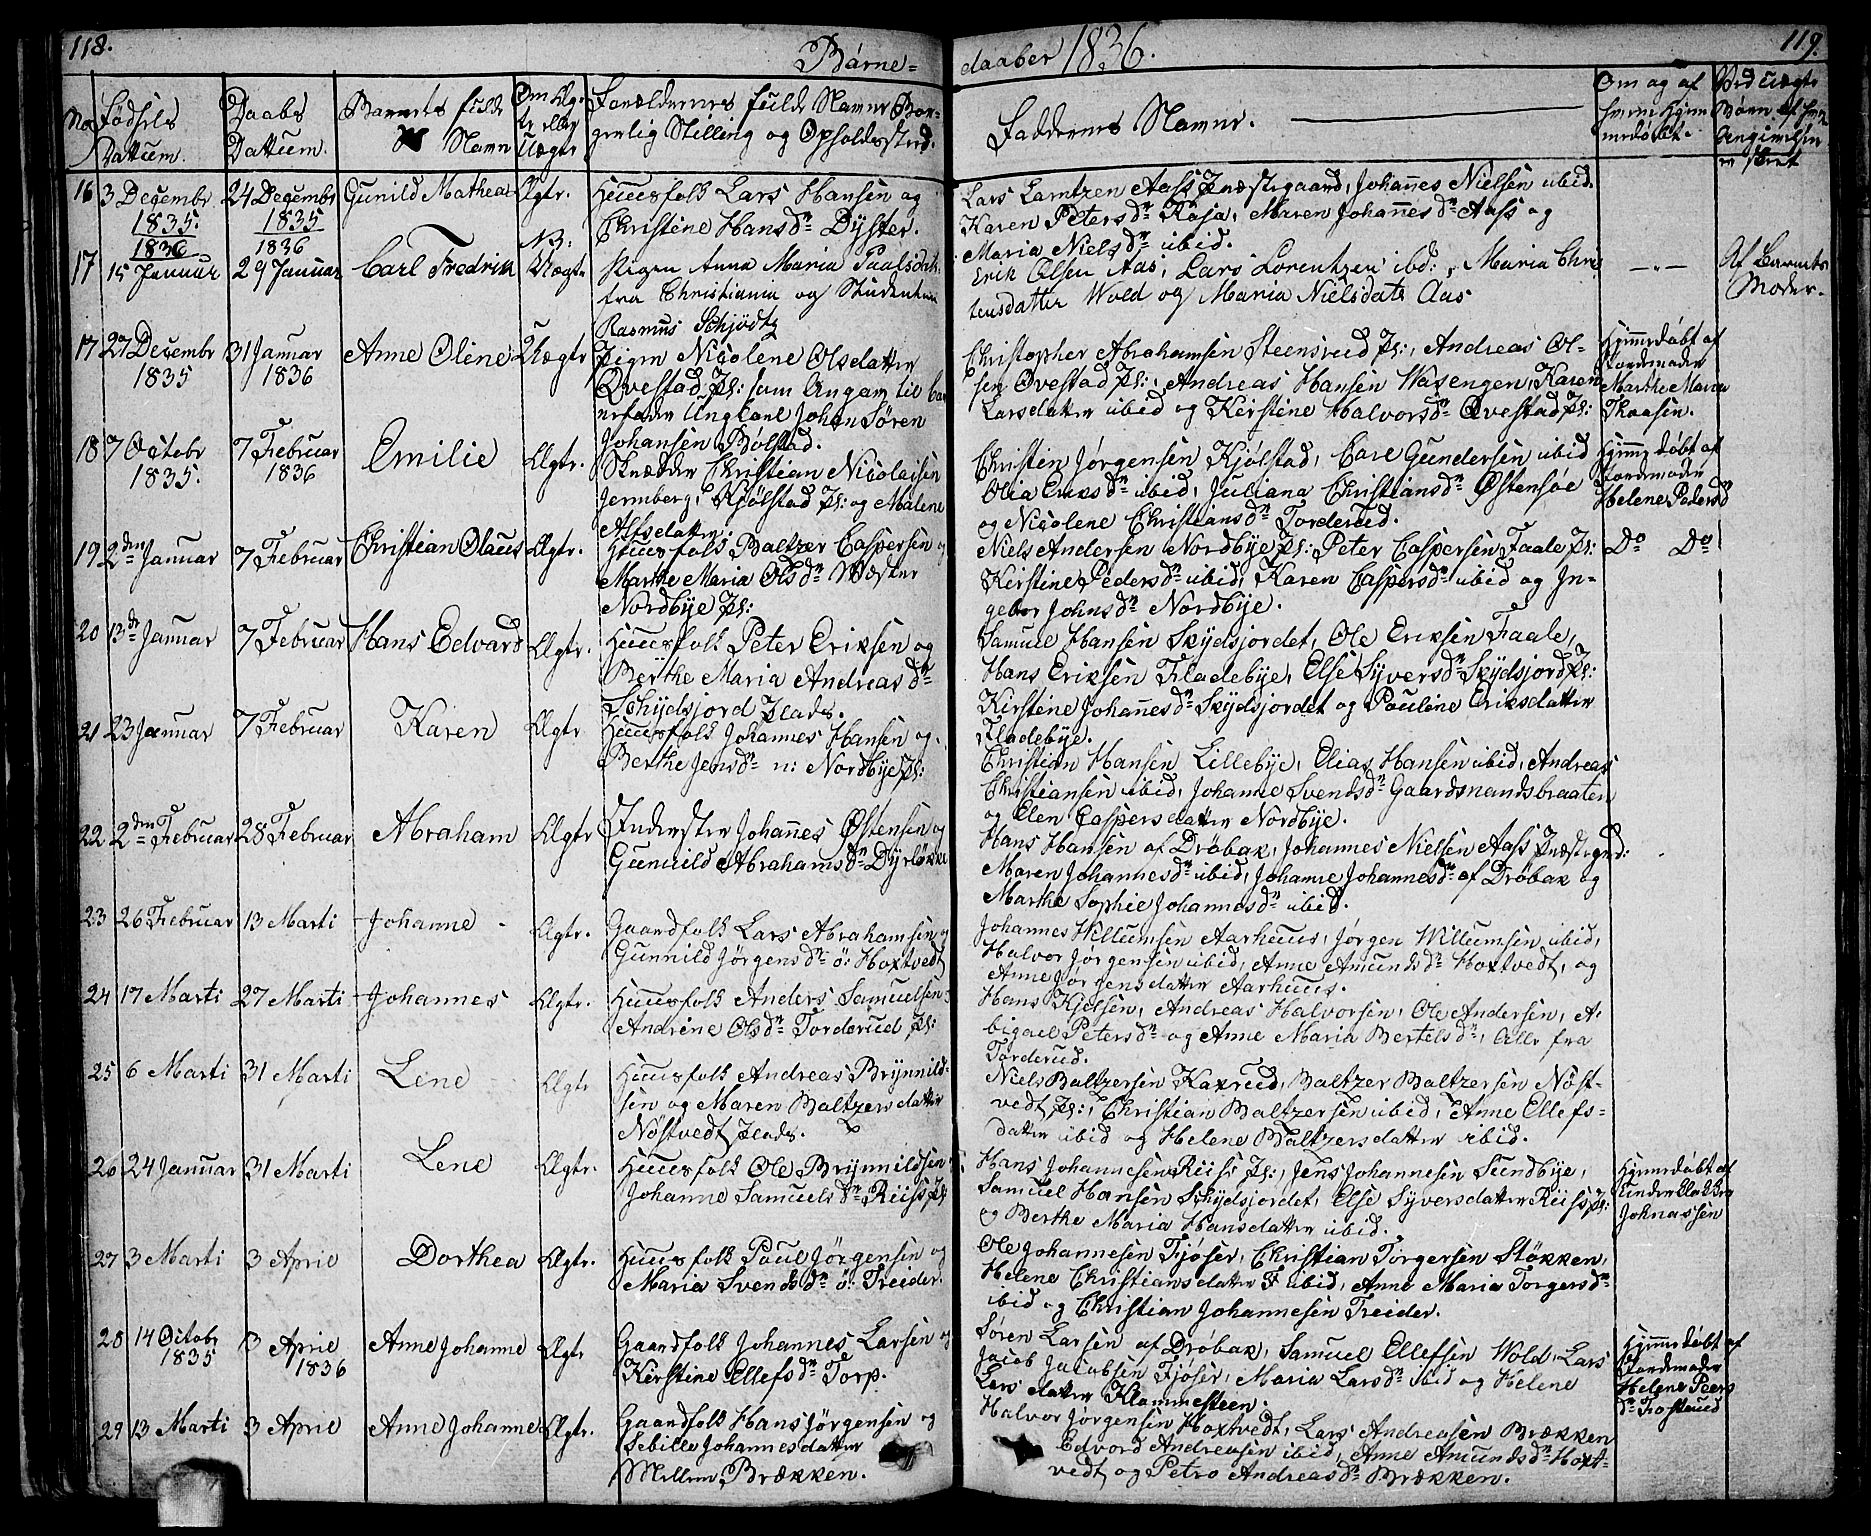 118.
Børne=
daaber 1836.
119.
No
Fødsels Dattum.
Daabs Dattum.
Barnets fulde Navn
Om Ægte eller Uægte
Forældrenes fulde Navne Borgerlig Stilling og Opholdssted.
Faddernes Navne.
Om og af hvem hjemmedøbt.
Ved uægte Børn af hvem Angivelsen er skeet
16 3 Decembr 1835. 24 Decembr 1835 Gunild Mathea Ægte.
Huusfolk Lars Hansen og
Christine Hansdr Dyster.
Lars Larntzen Aass Præstegaard, Johannes Nielsen ibid.
Karen Petersdr Kaja, Maren Johannesdr Aass og
Maria Nielsdr ibid.
17 1836 15 Januar 1836 29 Januar Carl Fredrik NB: Uægte
Pigen Anna Maria Paalsdatt.
fra Christiania og Studenten
Rasmus Schjødtz
Erik Olsen Aas, Lars Lorentzen ibd:, Maria Chris
tensdatter Wold og Maria Nielsdatr Aas
— " —
Af Barnets Moder.
17 27 Decembr 1835 31 Januar 1836 Anne Oline Uægte
Pigen Nicolene Olsdatter
Qvestad Pl: som Angav til Bar
nefader Ungkarl Johan Søren
Johansen Bølstad.
Christopher Abrahamsen Steensrud Pl:, Andreas Ol-
sen Qvestad Pl:, Andreas Hansen Wasengen, Karen
Larsdatter ibid og Kirstine Halvorsdr Qvestad Pl:
Hjemmedøbt af Jordemoder Marthe Maria Thoresen.
18 7 Octobr 1835. 7 Februar 1836 Emilie Ægte.
Skrædder Christian Nicolaisen
Jernberg, Kjølstad Pl: og Malene
Alfsdatter.
Christen Jørgensen Kjølstad, Carl Gundersen ibid
Olia Eriksdr ibid, Juliana Christiansdr Østensøe
og Nicolene Christiansdr Torderud.
Hjemmedøbt af Jordemoder Helene Pedersdr
19 2den Januar 7 Februar Christian Olaus Ægte.
Huusfolk Baltzer Caspersen og
Marthe Maria Olsdr Wæster
Nordbye Pl:
Niels Andersen Nordbye Pl: Peter Caspersen Faale Pl:
Kirstine Pedersdr ibid, Karen Caspersdr ibid og In-
gebor Johnsdr Nordbye.
Do Do
20 13de Januar 7 Februar Hans Edvard Ægte.
Huusfolk Peter Eriksen og
Berthe Maria Andreasdr
Schydsjord Plads.
Samuel Hansen Skydsjordet, Ole Eriksen Faale,
Hans Eriksen Fladebye, Else Syversdr Skydsjord Pl:
Kirstine Johannesdr Skydsjordet og Pauline Eriksdatter
Fladebye.
21 23 Januar 7 Februar Karen Ægte
Huusfolk Johannes Hansen og
Berthe Jensdr n: Nordbye Pl:
Christian Hansen Lillebye, Elias Hansen ibid, Andreas
Christiansen ibid, Johanne Svendsdr Gaardsmandsbraaten
og Elen Caspersdatter Nordbye.
22 2den Februar 28 Februar Abraham Ægte
Inderster Johannes Østensen og
Gunnild Abrahamsdr Dyrløkke
Hans Hansen af Drøbak, Johannes Nielsen Aass Præstegrd:
Maren Johannesdr ibid, Johanne Johannesdr af Drøbak og
Marthe Sophie Johannesdr ibid.
23 26 Februar 13 Marti Johanne Ægte.
Gaardfolk Lars Abrahamsen og
Gunnild Jørgensdr ø: Hoxtvedt
Johannes Willumsen Aarhuus, Jørgen Willumsen ibid,
Halvor Jørgensen ibid, Anne Amundsdr Hoxtvedt, og
Anne Jørgensdatter Aarhuus.
24 17 Marti 27 Marti Johannes Ægte.
Huusfolk Anders Samuelsen
Andrine Olsdr Torderud Pl:
Hans Kjelsen, Andreas Halvorsen, Ole Andersen, A-
bigael Petersdr og Anne Maria Bertelsdr, Alle fra
Torderud.
25 6 Marti 31 Marti Lene Ægte
Huusfolk Andreas Brynnild-
sen og Maren Baltzersdatter
Nøstvedt Plads.
Niels Baltzersen Kaxrud, Baltzer Baltzersen Nøst-
vedt Pl:, Christian Baltzersen ibid, Anne Ellefs-
datter ibid og Helene Baltzersdatter ibid.
26 24 Januar 31 Marti Lene Ægte.
Huusfolk Ole Brynnildsen
Johanne Samuelsdr Riiss Pl:
Hans Johannesen Riiss Pl:, Jens Johannesen Sundbye,
Samuel Hansen Schydsjordet, Else Syversdatter Riiss Pl:
og Berthe Maria Hansdatter ibid.
Hjemmedøbt af
Johnassen
27 3 Marti 3 April Dorthea Ægte.
Huusfolk Paul Jørgensen og
Maria Svendsdr ø: Treider.
Ole Johannesen Fjøser, Christian Torgersen Støkken,
Helene Christiansdatter ibid, Anne Maria Torgersdr
ibid og Christian Johannesen Treider.
28 14 Octobr 1835 3 April 1836 Anne Johanne Ægte
Gaardfolk Johannes Larsen og
Kirstine Ellefsdr Torp.
Søren Larsen af Drøbak, Samuel Ellefsen Wold, Lars
Jacob Jacobsen Fjøser, Maria Larsdr ibid og Helene
Larsdatter Klommesteen.
Hjemmedøbt af Jordemoder Helene Peersdr Trosterud
29 13 Marti 3 April Anne Johanne Ægte.
Gaardfolk Hans Jørgensen og
Sebille Johannesdatter
Mellem Brækken.
Halvor Jørgensen Hoxtvedt, Lars Andreasen Brækken
Edvord Andreasen ibid, Anne Amundsdr Hoxt-
vedt og Petro Andreasdr Brækken.